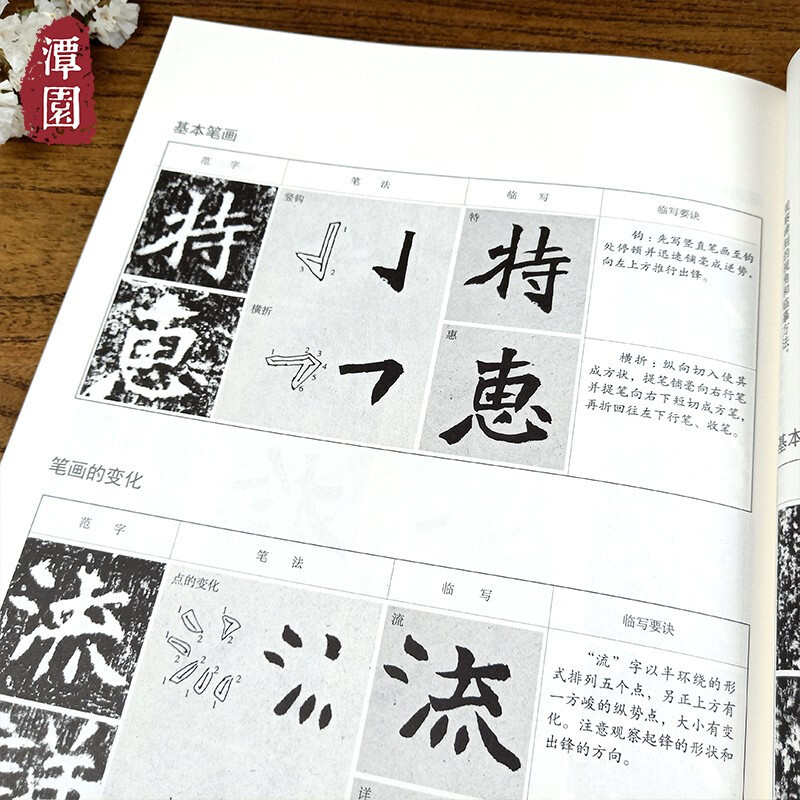 潭園
基本笔画
范字 笔法 临写 临写要诀
特
竖钩
1
2
3
特
特
钩：先写竖直笔画至钩
处停顿并迅速铺毫成逆势，
向左上方推行出锋。
惠
横折
1
2
3
4
5
6
惠
惠
横折：纵向切入使其
成方状，提笔铺毫向右行笔
并提笔向右下短切成方笔，
再折回往左下行笔、收笔。
笔画的变化
范字 笔法 临写 临写要诀
流
点的变化
1 2 1 2
1 2 1 2 1 2 1 2
流
流
“流”字以半环绕的形
式排列五个点，另正上方有
一方峻的纵势点，大小有变
化。注意观察起锋的形状和
出锋的方向。
详
基本